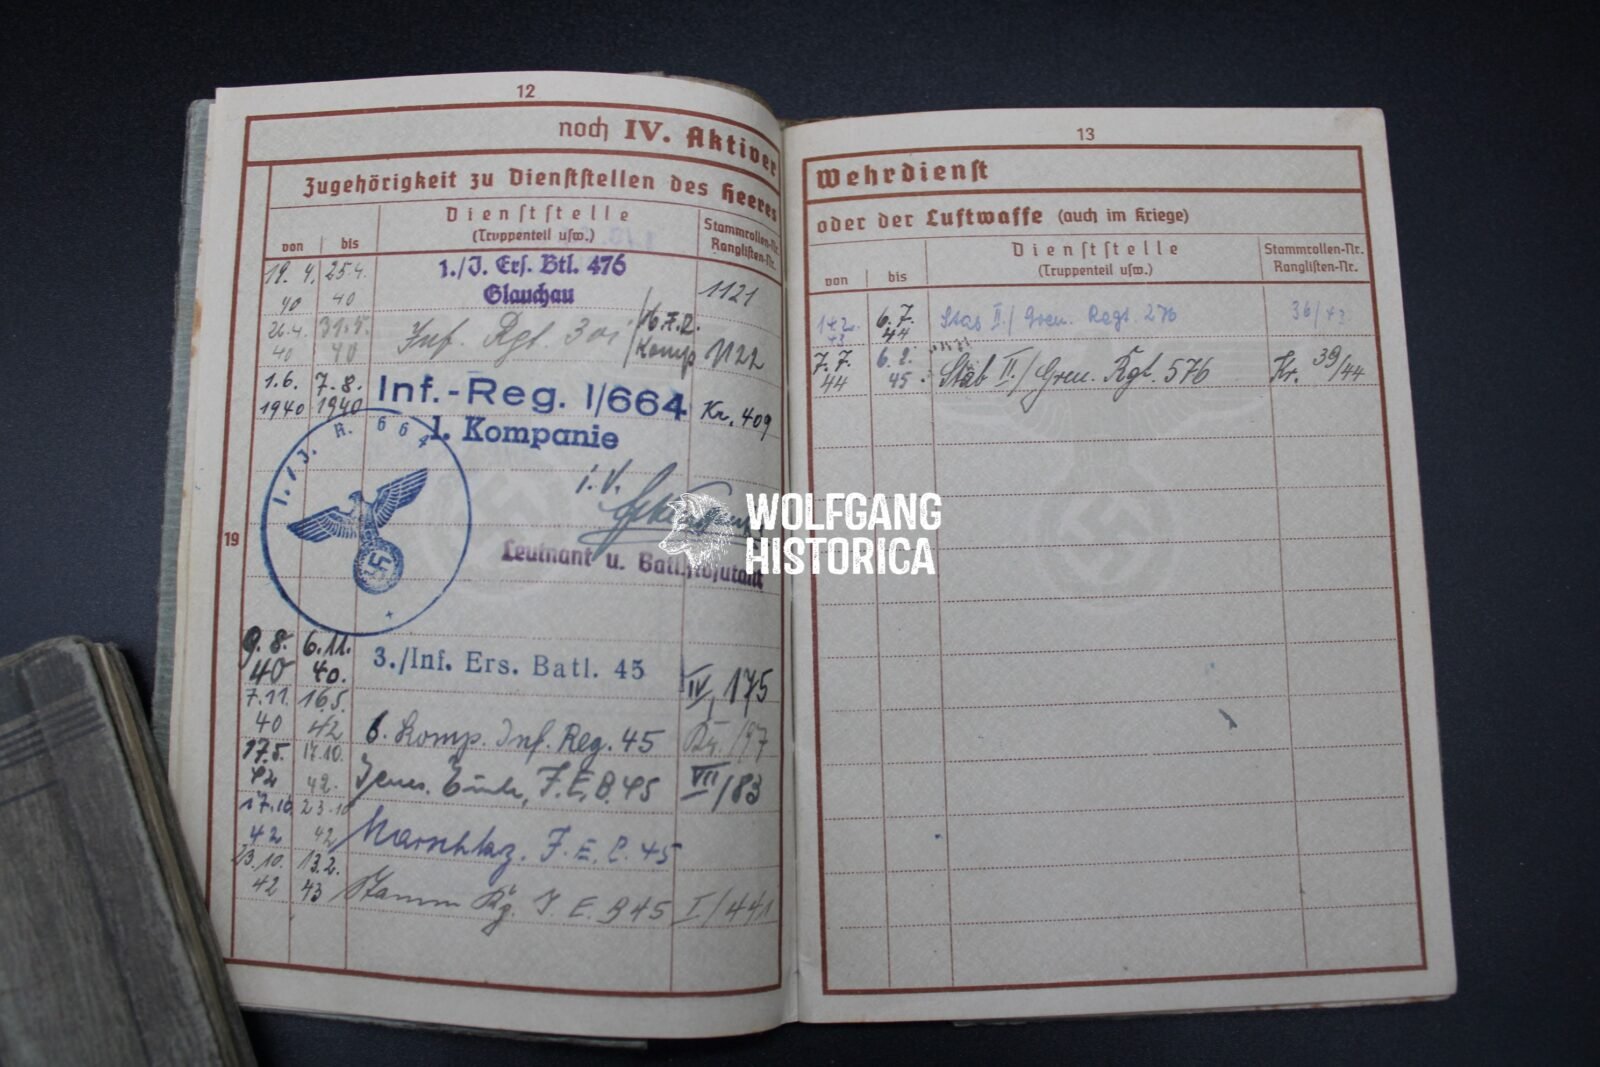 12
noch IV. Aktiver
Zugehörigkeit zu Dienststellen des Heeres
von
bis
Dienststelle
(Truppenteil usw.)
Stammrollen-Nr.
Ranglisten-Nr.
19. 4. 40
25. 4. 40
1./J. Ers. Btl. 476
Glauchau
1121
26. 4. 40
31. 5. 40
Inf. Rgt.
Komp
1122
1. 6. 1940
7. 8. 1940
Inf.-Reg. I/664
1. Kompanie
Kr. 409
1./J. R. 664
i. V.
Leutnant u. Batl.Adjutant
19
9. 8. 40
6. 11. 40.
3./Inf. Ers. Batl. 45
IV, 175
7. 11. 40
16. 5. 42
6. Komp. Inf. Reg. 45
/197
17. 5. 42
17. 10. 42.
Genes. J. E. B. 45
VII/83
17. 10. 42
23. 10. 42
J. E. B. 45
23. 10. 42
13. 2. 43
Stamm J. E. B 45
I/441
13
Wehrdienst
oder der Luftwaffe (auch im Kriege)
von
bis
Dienststelle
(Truppenteil usw.)
Stammrollen-Nr.
Ranglisten-Nr.
6. 7. 44
Stab II./Gren. Regt. 276
36/43
7. 7. 44
6. 2. 45.
Stab II./Gren. Rgt. 576
Kr. 39/44
WOLFGANG
HISTORICA